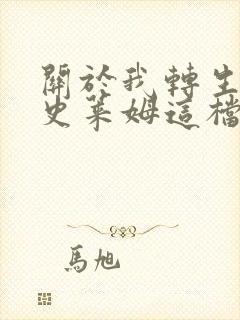 關於我轉生
史萊姆這檔
馬旭